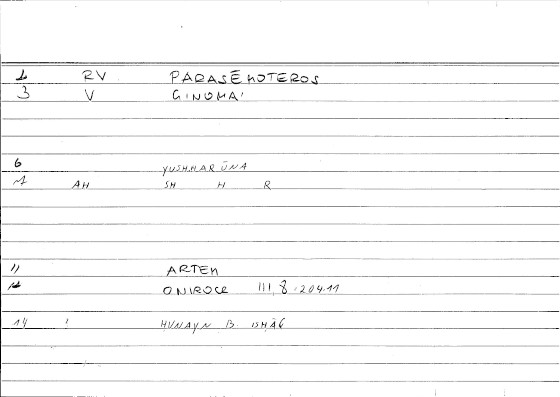 1 RV PARASĒMOTEROS
3 V GINOMA'
6 YUSHHARŪNA
AH SH H R
11 ARTEM
ONIROCR III, 8 : 204.11
14 ! HUNAYN B. ISHĀG